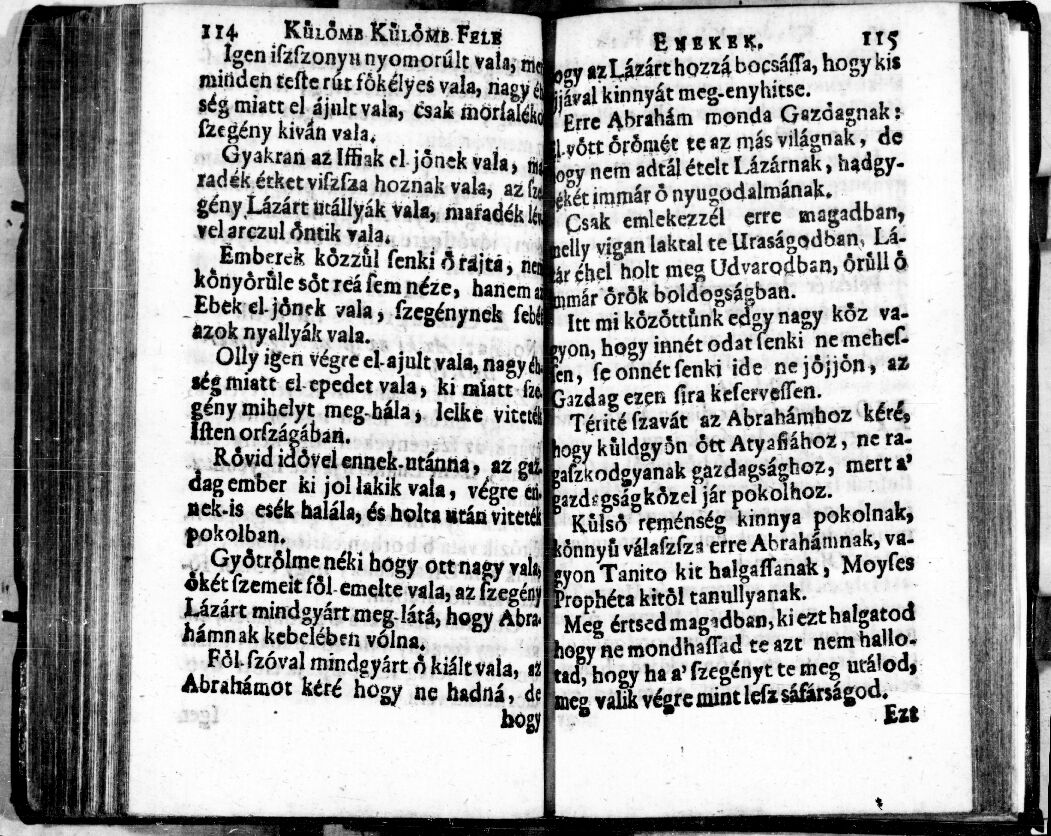 114 Kůlőmb Kůlőmb Fele
Igen iſzſzonyu nyomorúlt vala,
minden teſte rút főkélyes vala, nagy
ség miatt el ájult vala, csak morſaléko
ſzegény kiván vala.
Gyakran az Iffiak el-jőnek vala,
radék étket viſzſza hoznak vala, az
gény Lázárt utállyák vala, maradék
vel arczul őntik vala.
Emberek kőzzůl ſenki ő rajta,
kőnyőrůle sőt reá ſem néze, hanem
Ebek el-jőnek vala, ſzegénynek
azok nyallyák vala.
Olly igen végre el-ajult vala, nagy
ség miatt el-epedet vala, ki miatt
gény mihelyt meg-hála, lelke viteték
Iſten orſzágában.
Rővid idővel ennek-utánna, az
dag ember ki jol lakik vala, végre
nek-is esék halála, és holta után viteték
pokolban.
Győtrőlme néki hogy ott nagy vala,
őkét ſzemeit fől-emelte vala, az ſzegény
Lázárt mindgyárt meg-látá, hogy Abra-
hámnak kebelében vólna.
Fől-ſzóval mindgyárt ő kiált vala, az
Abrahámot kéré hogy ne hadná, de
hogy
Enekek. 115
ogy az Lázárt hozzá bocsáſſa, hogy kis
jával kinnyát meg-enyhitse.
Erre Abrahám monda Gazdagnak:
vőtt őrőmét te az más világnak, de
ogy nem adtál ételt Lázárnak, hadgy-
két immár ő nyugodalmának.
Csak emlekezzél erre magadban,
elly vigan laktal te Uraságodban, Lá-
ár éhel holt meg Udvarodban, őrůll ő
mmár őrők boldogságban.
Itt mi kőzőttůnk edgy nagy kőz va-
gyon, hogy innét odat ſenki ne meheſ-
ſen, ſe onnét ſenki ide ne jőjjőn, az
Gazdag ezen ſira keſerveſſen.
Térité ſzavát az Abrahámhoz kéré,
hogy kůldgyőn őtt Atyafiához, ne ra-
gaſzkodgyanak gazdagsághoz, mert a'
gazdagság kőzel jár pokolhoz.
Kůlső reménség kinnya pokolnak,
kőnnyů válaſzſza erre Abrahámnak, va-
gyon Tanito kit halgaſſanak, Moyſes
Prophéta kitől tanullyanak.
Meg értsed magadban, ki ezt halgatod
hogy ne mondhaſſad te azt nem hallo-
tad, hogy ha a' ſzegényt te meg utálod,
meg valik végre mint leſz sáfárságod.
Ezt